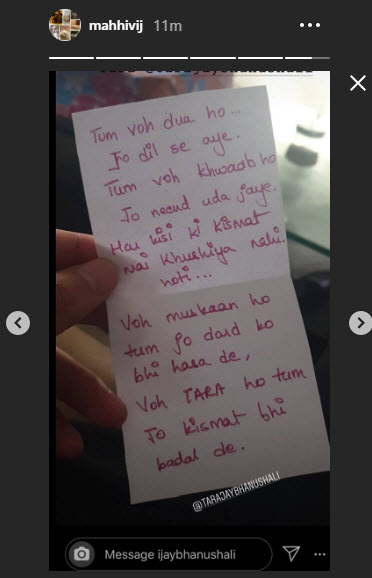 mahhivij 11m
Tum voh dua ho...
Jo dil se aye.
Tum voh khwaab ho
Jo neend uda jaye.
Har kisi ki kismat
mai khushiya nahi
hoti...
Voh muskaan ho
tum jo dard ko
bhi hara de,
Voh TARA ho tum
Jo kismat bhi
badal de.
@TARAJAYBHANUSHALI
Message ijaybhanushali